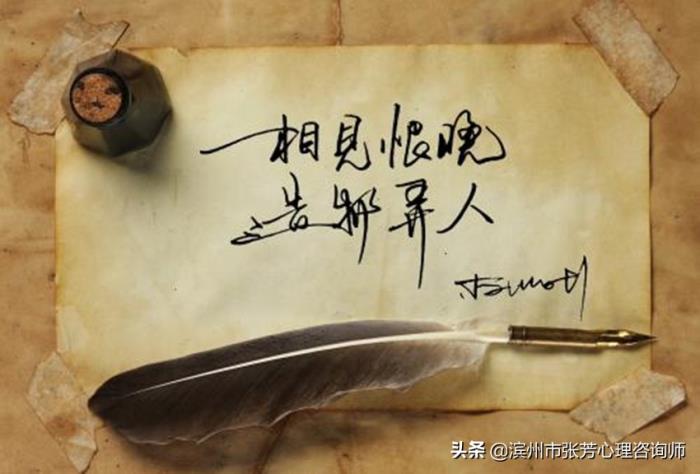 相见恨晚
造物弄人
头条 @滨州市张芳心理咨询师